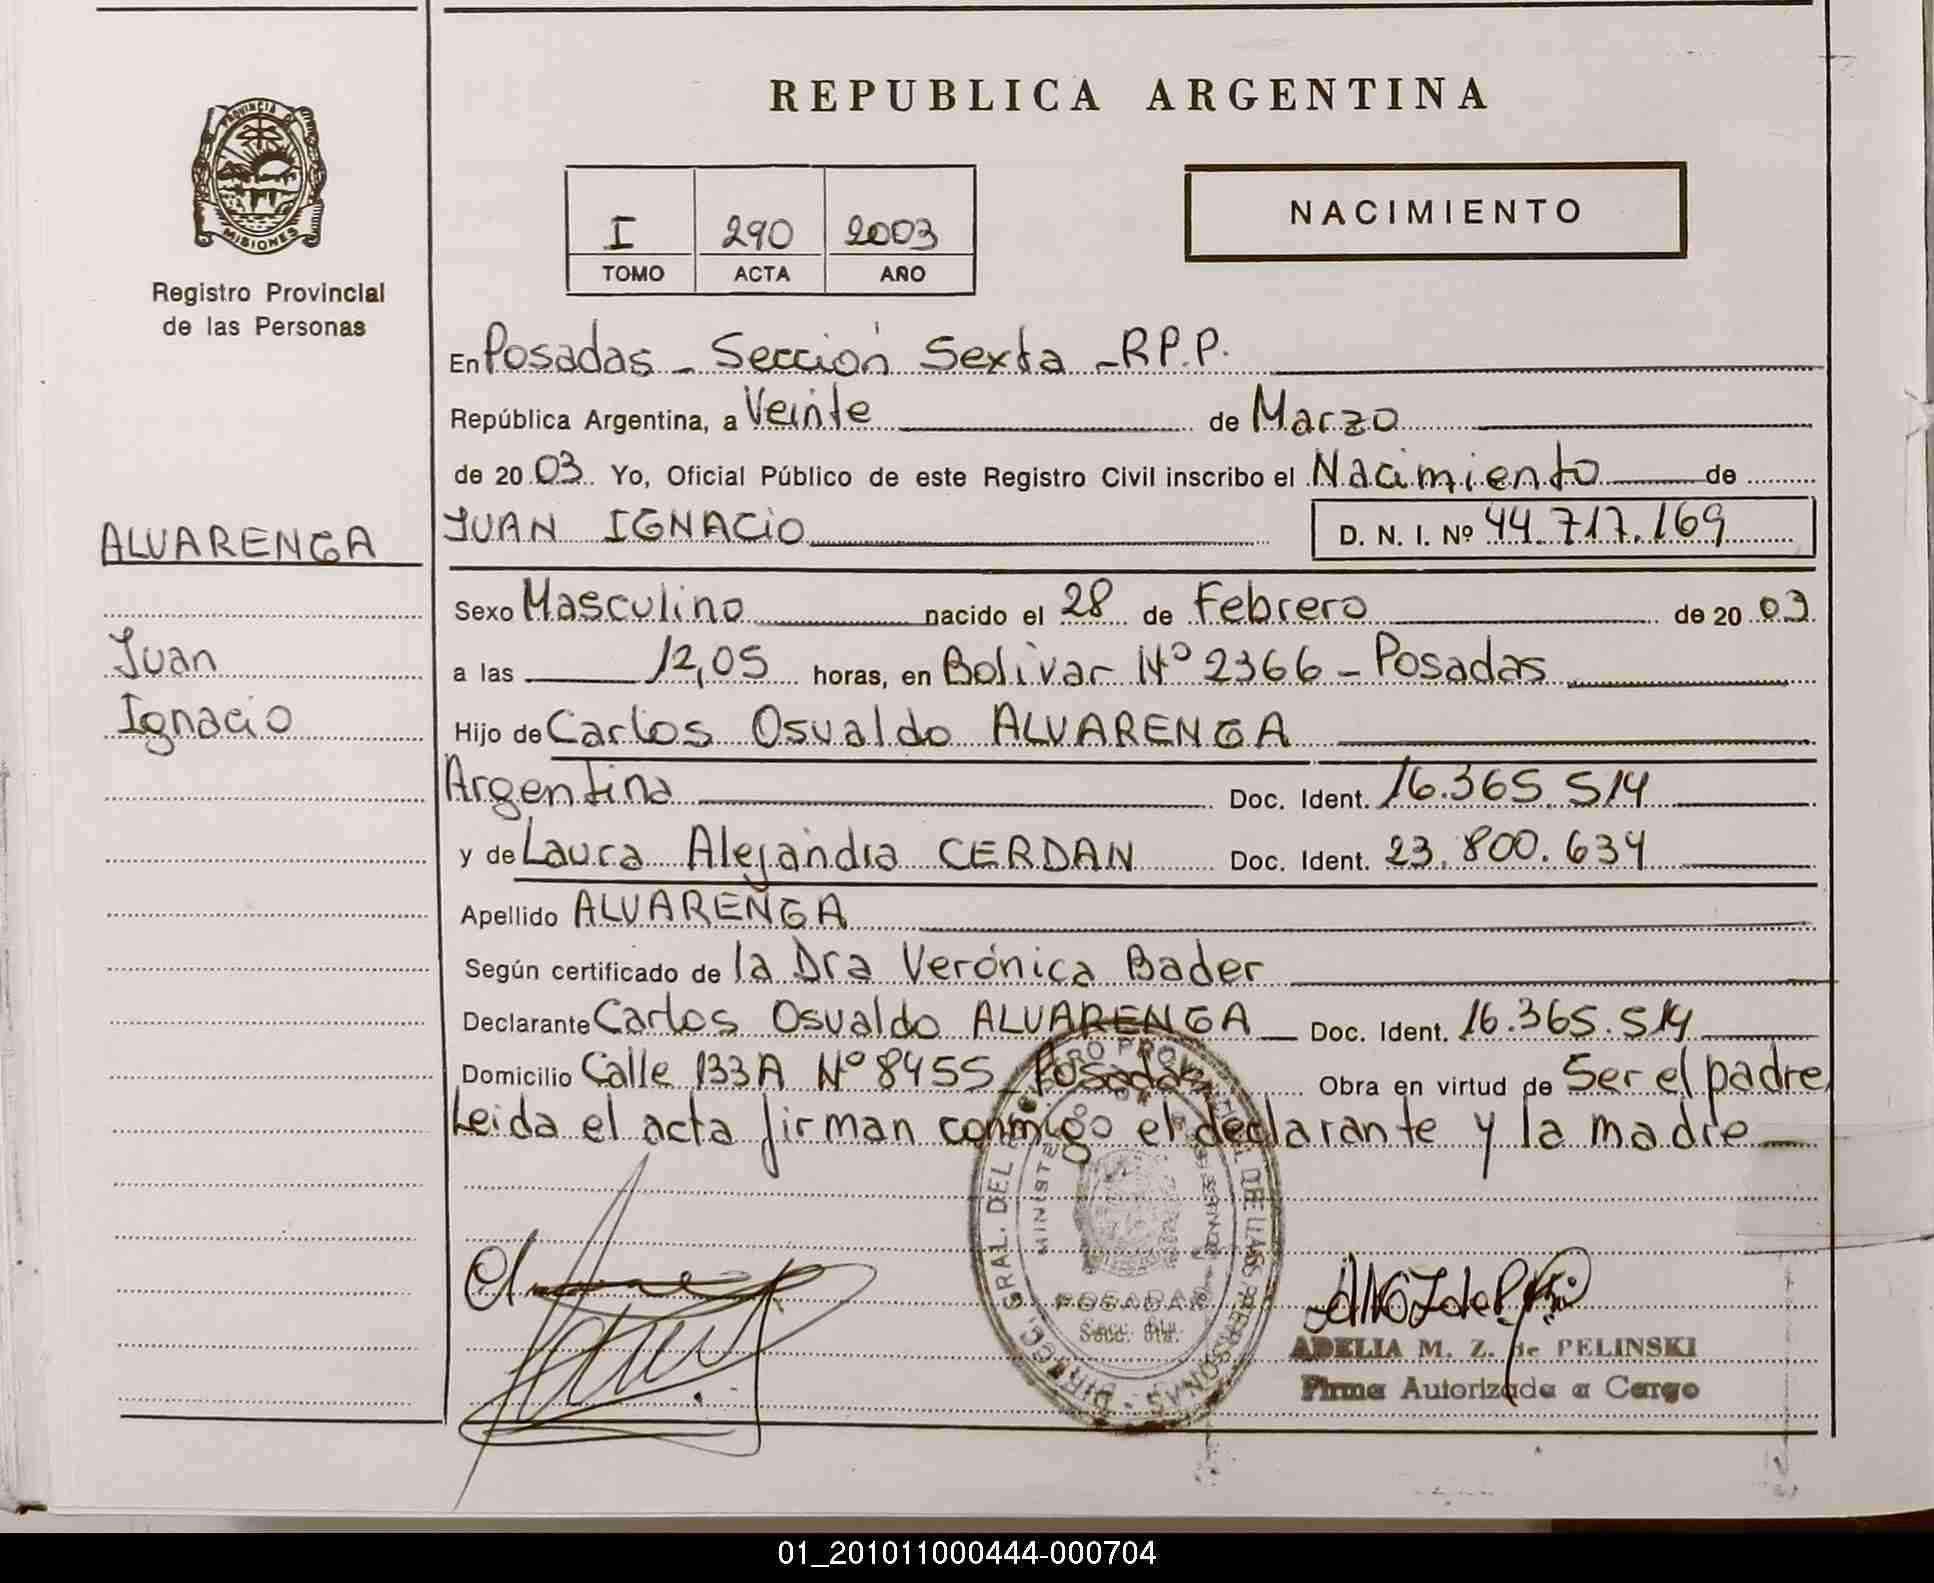 REPUBLICA ARGENTINA
PROVINCIA DE
MISIONES
Registro Provincial
de las Personas
I 290 2003
TOMO ACTA AÑO
NACIMIENTO
En Posadas - Sección Sexta - R.P.P.
República Argentina, a Veinte de Marzo
de 2003. Yo, Oficial Público de este Registro Civil inscribo el Nacimiento de
ALVARENGA
JUAN IGNACIO D. N. I. Nº 44.717.169
Sexo Masculino nacido el 28 de Febrero de 2003
Juan
a las 12,05 horas, en Bolivar Nº 2366 - Posadas
Ignacio
Hijo de Carlos Osvaldo ALVARENGA
Argentina Doc. Ident. 16.365.514
y de Laura Alejandra CERDAN Doc. Ident. 23.800.634
Apellido ALVARENGA
Según certificado de la Dra Verónica Bader
Declarante Carlos Osvaldo ALVARENGA Doc. Ident. 16.365.514
Domicilio Calle 133A Nº 8455 Posadas Obra en virtud de Ser el padre
Leida el acta firman conmigo el declarante y la madre
DIRECC. GRAL. DEL REGISTRO PROVINCIAL DE LAS PERSONAS
POSADAS
Secc. 6ta.
ADELIA M. Z. de PELINSKI
Firma Autorizada a Cargo
01_201011000444-000704